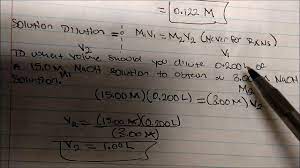 = 0.122 M
Solution Dilution = M₁V₁ = M₂V₂ (Never for RXNS)
V₂ V₁
To what volume should you dilute 0.200L of
a 15.0 M NaOH solution to obtain a 3.00 M NaOH
M₁ M₂
Solution?
(15.00 M)(0.200L) = (3.00 M) V₂
V₂ = (15.00 M)(0.200 L)
(3.00 M)
V₂ = 1.00 L